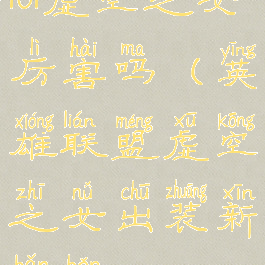 lol虚空之女
lì hài ma yīng
厉害吗（英
xióng lián méng xū kōng
雄联盟虚空
zhī nǚ chū zhuāng xīn
之女出装新